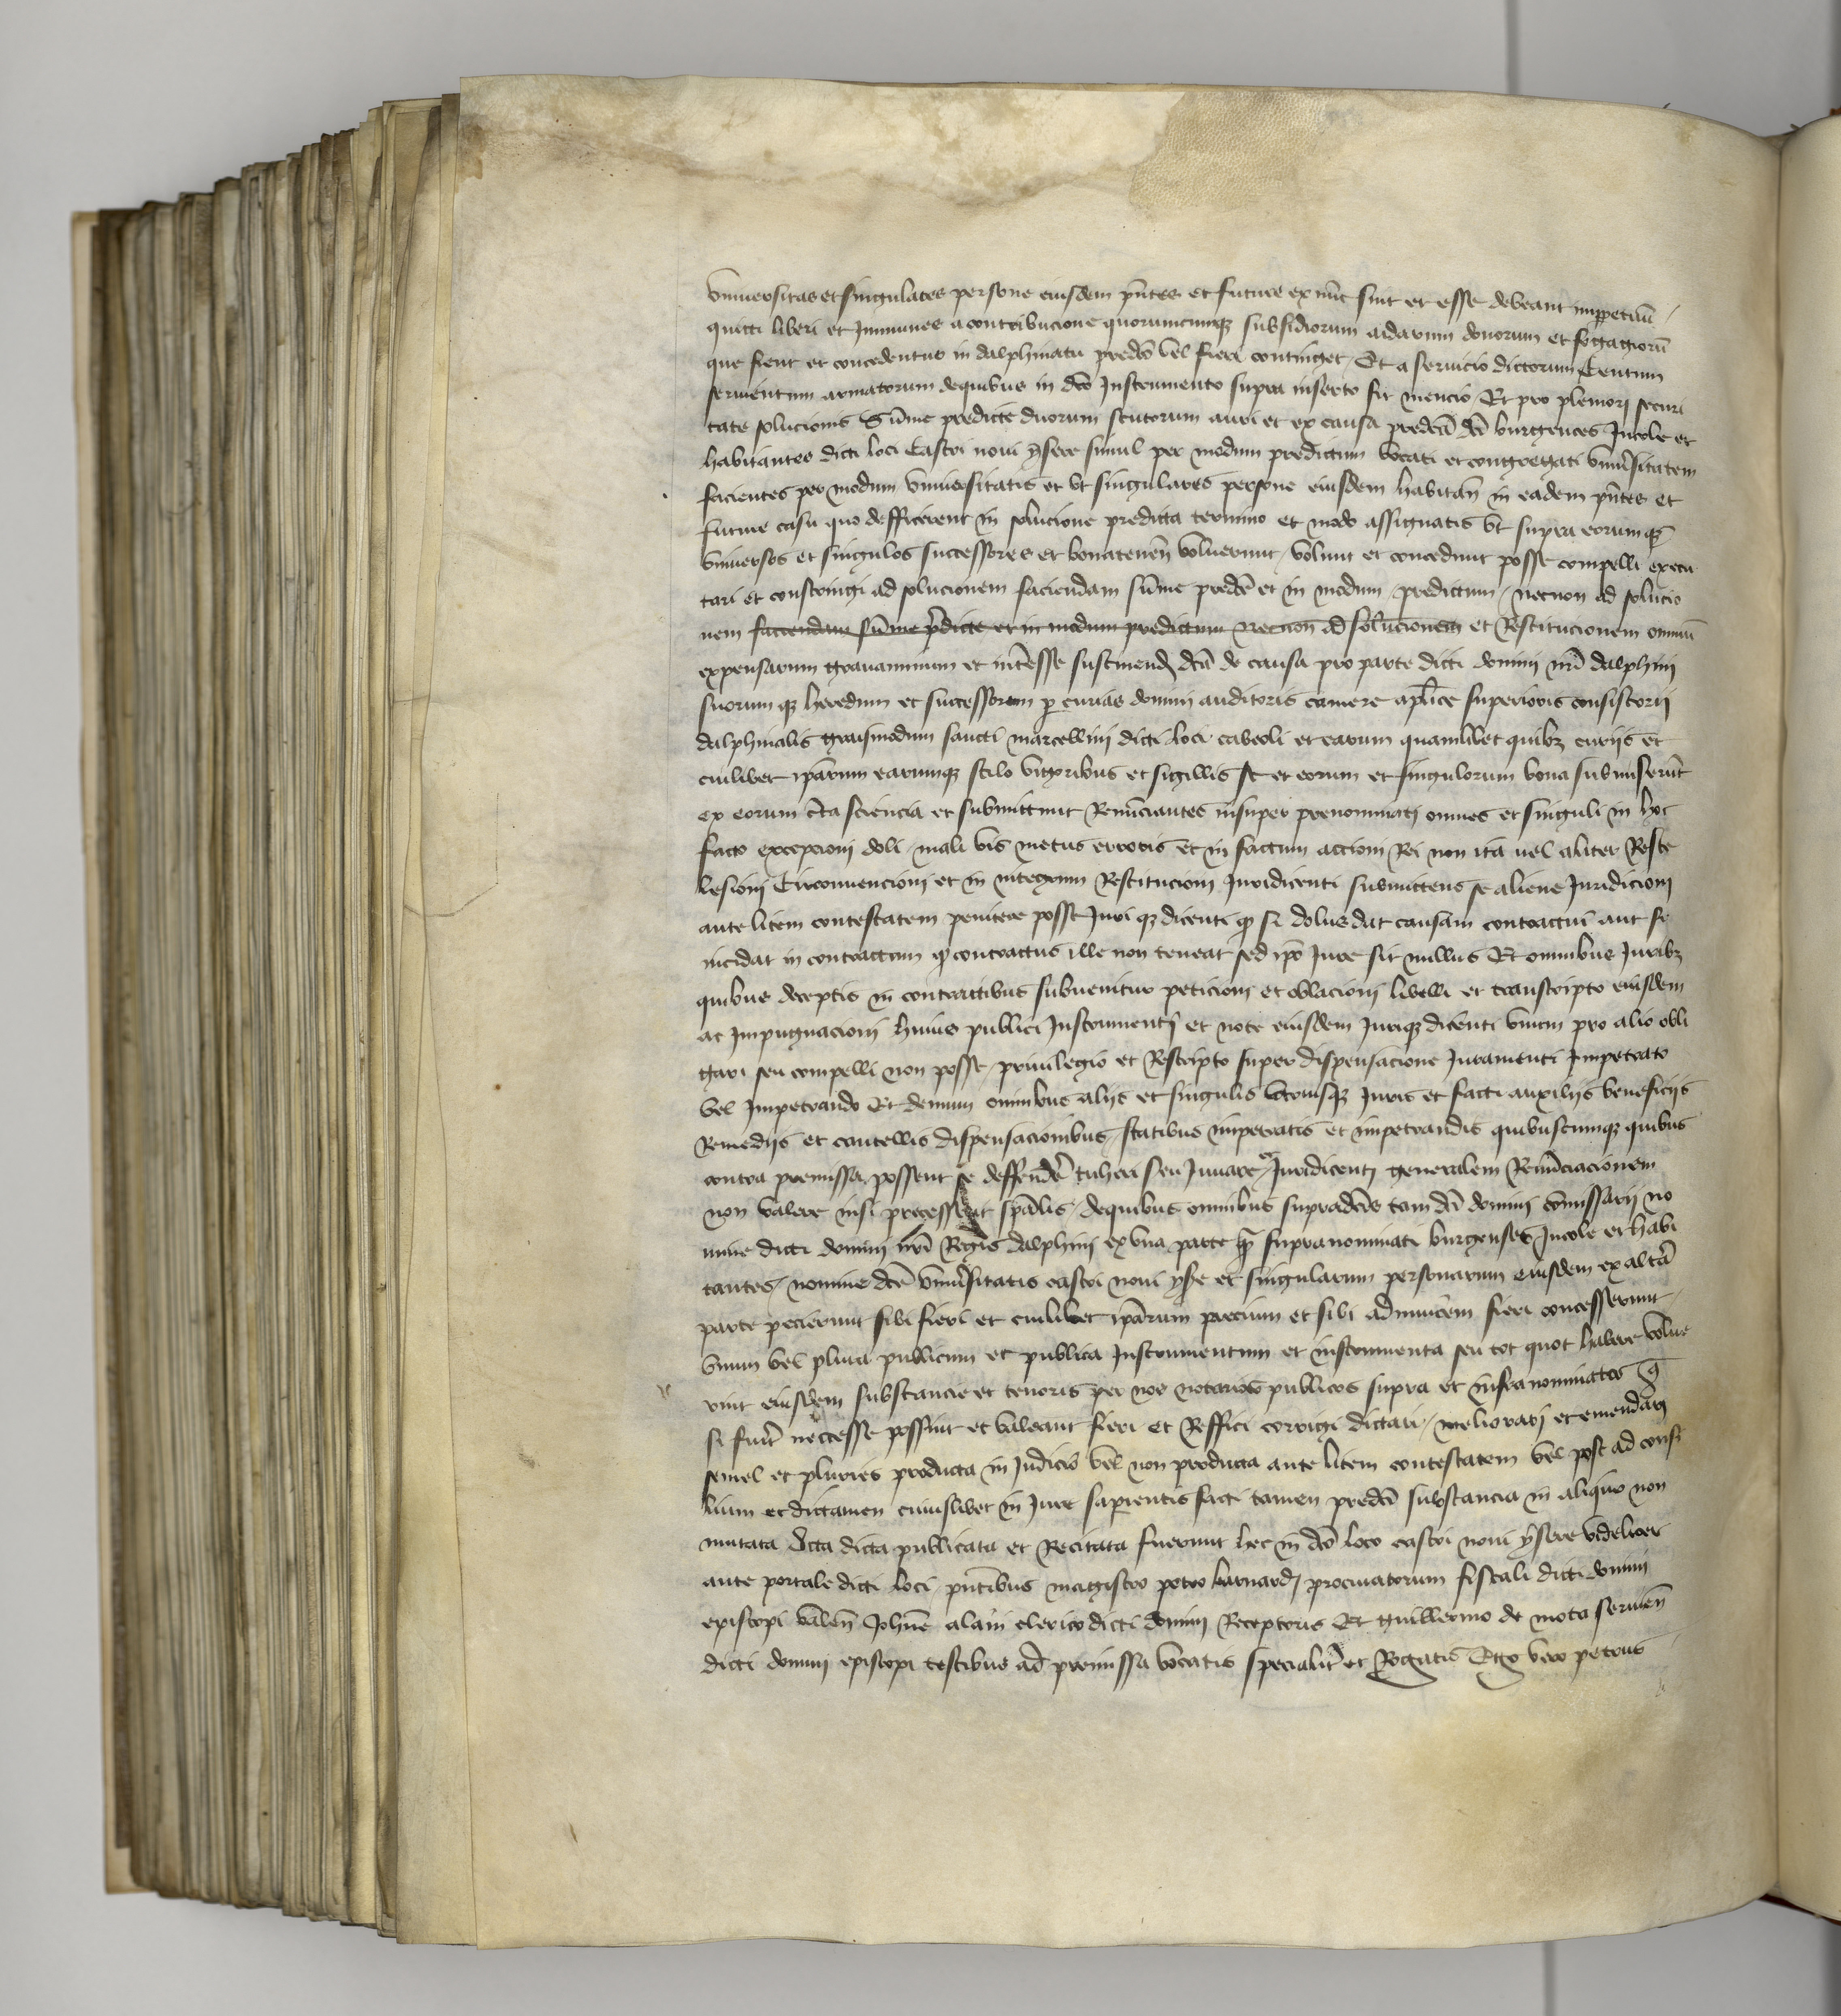 vniuersitas et singulares persone eiusdem pntes et future ex nūc sint et esse debeant imppetuū
quitti liberi et Immunes a contribucione quorumcumqz subsidiorum aidarum donorum et fogagiorū
que fient et concedentur in dalphinatu predco vel fieri continget Et a seruicio dictorum Centum
seruientum armatorum dequibus in dco Instrumento supra inserto fit mencio Et pro pleniori securi
tate solucionis Sūme predicte duorum scutorum auri et ex causa predcā dcī burgences Incole et
habitantes dicti loci Castri noui ysere simul per modum predictum vocati et congregati vniusitatem
facientes per modum vniuersitatis et vt singulares persone eiusdem habitān in eadem pntes et
future casu quo defficerent in solucione predicta termino et modo assignatis vt supra eorumqz
vniuersos et singulos successores et bonatenen voluerunt volunt et concedunt posse compelli execu
tari et constringi ad solucionem faciendam sūme predcē et in modum predictum necnon ad solucio
nem faciendam sūme pdicte et in modum predictum necnon ad solucionem et Restitucionem omniū
expensarum grauaminum et intesse sustinend dcā de causa pro parte dicti domini nrī dalphini
suorumqz heredum et successorum p curias domini auditoris camere aplice superioris consistorii
dalphinalis graisinodum sancti marcellini dicti loci cabeoli et earum quamlibet quibz curiis et
cuilibet ipārum earumqz stilo vigoribus et sigillis se et eorum et singulorum bona submiserūt
ex eorum cta sciencia et submittunt Renūciantes insuper prenominati omnes et singuli in hoc
facto excepcioni doli mali vis metus erroris et in factum actioni Rei non ita uel aliter geste
lesioni Circonuencioni et in integrum Restitucioni Juridicenti submittens se aliene Juridicioni
ante litem contestatem penitere posse Juriqz dicenti q si dolus dat causam contractui aut se
incidat in contractum q contractus ille non teneat sed ipo Jure sit nullus Et omnibus Juribz
quibus deceptis in contractibus subuenitur peticioni et oblacioni libelli et transcripto eiusdem
ac Impugnacioni huius publici Instrumenti et note eiusdem Juriqz dicenti vnum pro alio obli
gari seu compelli non posse priuilegio et Rescripto super dispensacione Juramenti Impetrato
vel Impetrando Et demum omnibus aliis et singulis vtriusqz Juris et facti auxiliis beneficiis
Remediis et cautellis dispensacionibus statibus impetratis et impetrandis quibuscumqz quibus
contra premissa possent se deffende tuheri seu Juuare Juridicenti generalem Renūciacionem
non valere nisi precesserit spālis dequibus omnibus supradcīs tam dcī domini cōmissarii no
mine dicti domini nrī Regis dalphini ex vna parte q supranominati burgenses Incole et habi
tantes nomine dcē vniusitatis castri noui yse et singularum personarum eiusdem ex altā
parte pecierunt sibi fieri et cuilibet ipārum parcium et sibi adinuicem fieri concesserunt
vnum vel plura publicum et publica Instrumentum et instrumenta seu tot quot habere volue
rint eiusdem substancie et tenoris per nos notarios publicos supra et infranominatos q
si fuit neccesse possint et valeant fieri et Reffici corrigi dictari meliorari et emendari
semel et pluries producta in Judicio vel non producta ante litem contestatem vel post ad consi
lium et dictamen cuiuslibet in Jure sapientis facti tamen predcī substancia in aliquo non
mutata Acta dicta publicata et Recitata fuerunt hec in dco loco castri noui ysere videlicet
ante portale dicti loci pntibus magistro petro barnard procuratorum fiscali dicti domini
episcopi valen Johne alani clerico dicti domini Receptoris Et guillermo de mota seruien
dicti domini episcopi testibus ad premissa vocatis specialit et Rogatis Ego vero petrus